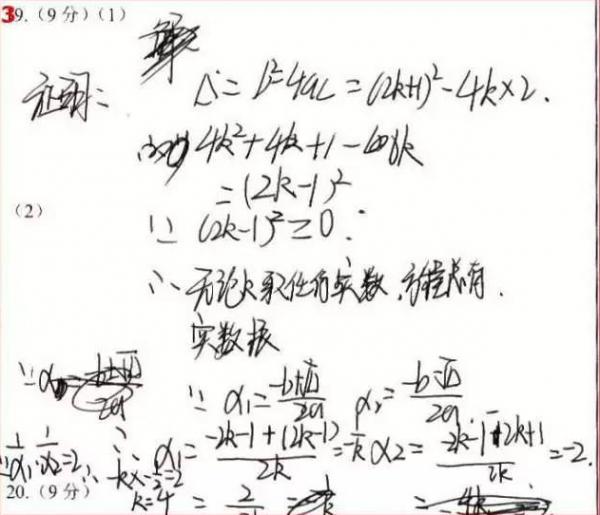 39.(9分)(1)
证明:
Δ=b²-4ac=(2k+1)²-4k×2.
4k²+4k+1-8k
=(2k-1)²
(2)
∵ (2k-1)²≥0.
∴ 无论k取任何实数,方程总有
实数根
∵ x₁=(-b+√Δ)/2a x₂=(-b-√Δ)/2a
1/x₁·1/x₂=2 ∴ x₁=(-2k-1+(2k-1))/2k=-1/k x₂=(-2k-1-2k+1)/2k=-2.
-k×-1/2=2
k=4
20.(9分)